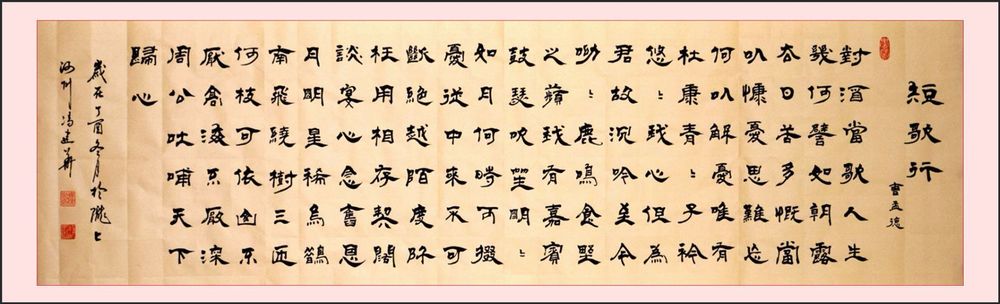 短歌行
曹孟德
對酒當歌人生
幾何譬如朝露
去日苦多慨當
以慷憂思難忘
何以解憂唯有
杜康青〻子衿
悠〻我心但為
君故沉吟至今
呦〻鹿鳴食野
之蘋我有嘉賓
鼓瑟吹笙明〻
如月何時可掇
憂從中來不可
斷絕越陌度阡
枉用相存契闊
談宴心念舊恩
月明星稀烏鵲
南飛繞樹三匝
何枝可依山不
厭高海不厭深
周公吐哺天下
歸心
歲在丁酉冬月於隴上
州馮建華